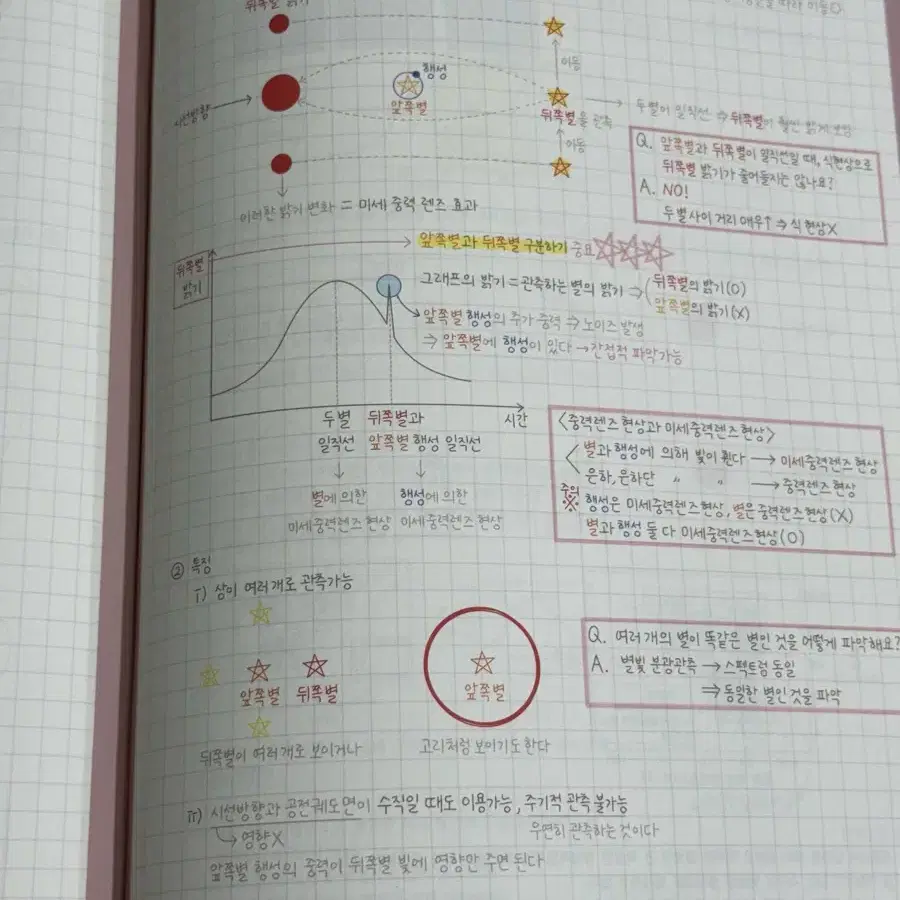 뒤쪽별 밝기
따라 이동
이동
행성
앞쪽별
시선방향
뒤쪽별을 관측
두별이 일직선 ⇒ 뒤쪽별이 훨씬 밝게 보임
이동
이러한 밝기 변화 = 미세 중력 렌즈 효과
Q. 앞쪽별과 뒤쪽별이 일직선일 때, 식현상으로
뒤쪽별 밝기가 줄어들지는 않나요?
A. NO!
두별 사이 거리 매우↑ ⇒ 식 현상X
앞쪽별과 뒤쪽별 구분하기 중요
뒤쪽별
밝기
그래프의 밝기 = 관측하는 별의 밝기 ⇒ 뒤쪽별의 밝기(O)
앞쪽별의 밝기(X)
앞쪽별 행성의 추가 중력 ⇒ 노이즈 발생
⇒ 앞쪽별에 행성이 있다 → 간접적 파악가능
시간
두별 뒤쪽별과
일직선 앞쪽별 행성 일직선
별에 의한 행성에 의한
미세중력렌즈 현상 미세중력렌즈 현상
<중력렌즈 현상과 미세중력렌즈 현상>
별과 행성에 의해 빛이 휜다 → 미세중력렌즈 현상
은하, 은하단 〃 〃 → 중력렌즈 현상
주의
※ 행성은 미세중력렌즈 현상, 별은 중력렌즈 현상(X)
별과 행성 둘 다 미세중력렌즈 현상(O)
② 특징
i) 상이 여러개로 관측가능
앞쪽별 뒤쪽별
앞쪽별
뒤쪽별이 여러개로 보이거나
고리처럼 보이기도한다
Q. 여러 개의 별이 똑같은 별인 것을 어떻게 파악해요?
A. 별빛 분광관측 → 스펙트럼 동일
⇒ 동일한 별인 것을 파악
ii) 시선방향과 공전궤도면이 수직일 때도 이용가능, 주기적 관측 불가능
영향X
우연히 관측하는 것이다
앞쪽별 행성의 중력이 뒤쪽별 빛에 영향만 주면 된다